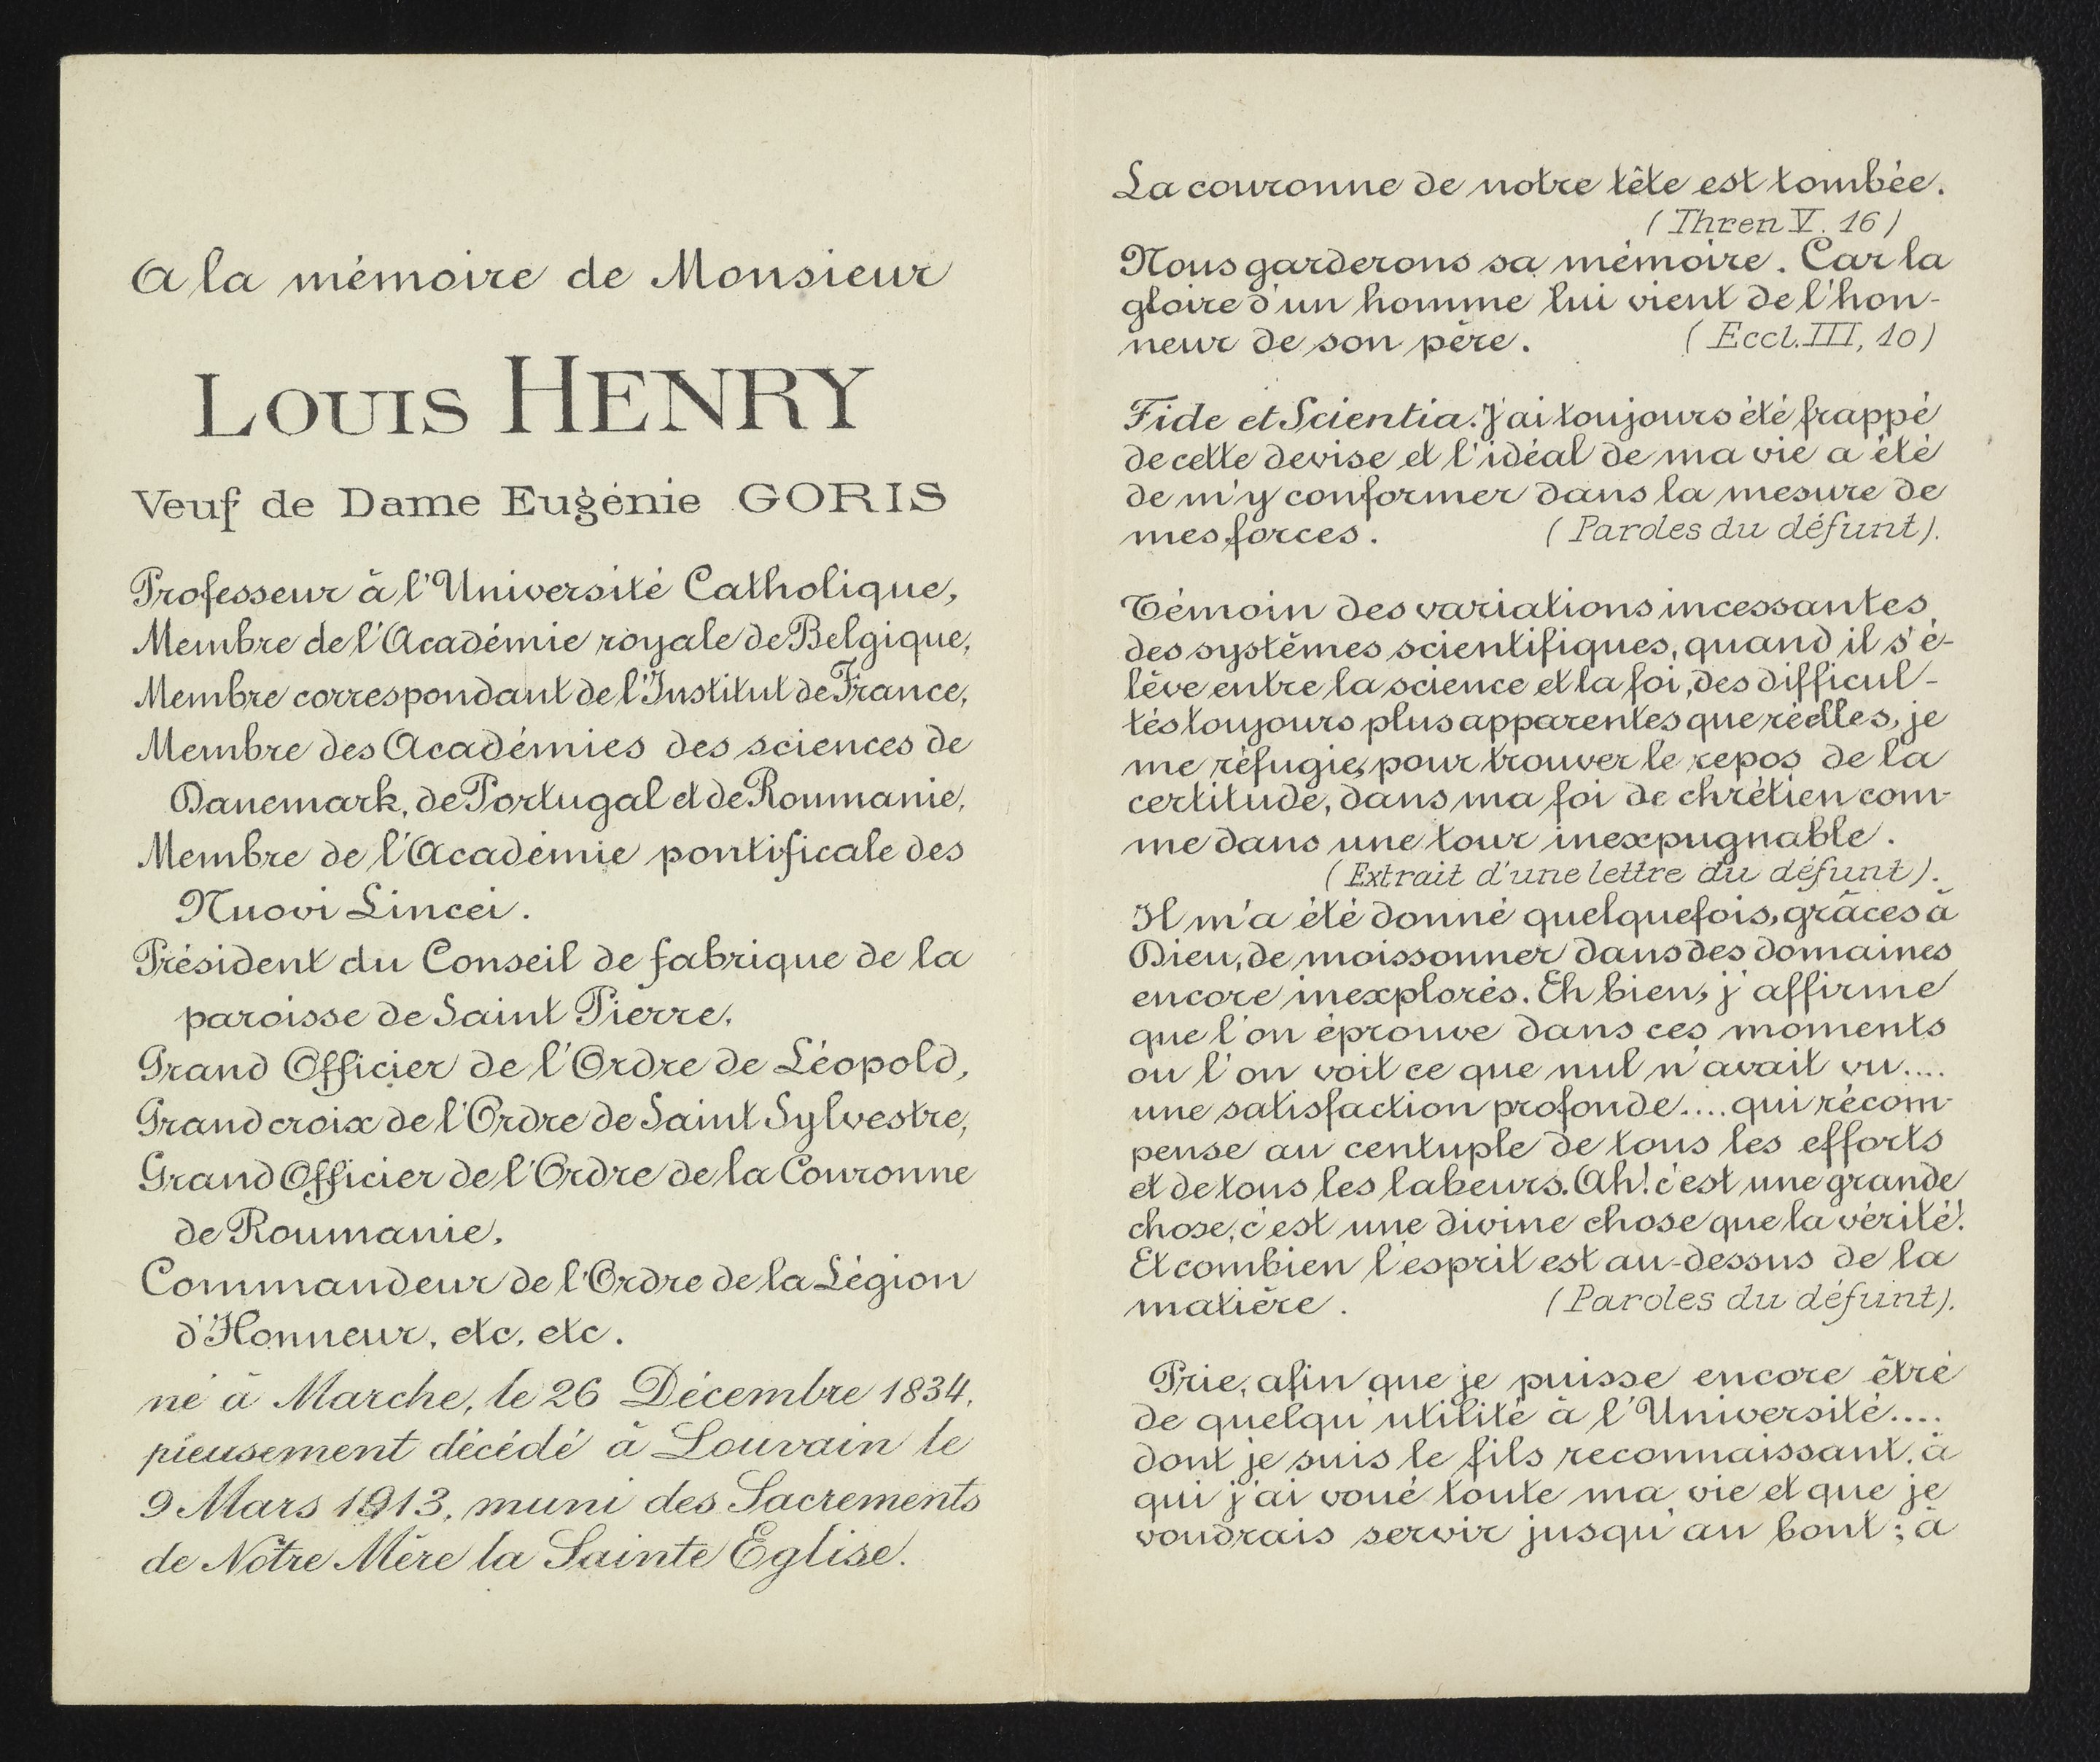 A la mémoire de Monsieur
LOUIS HENRY
Veuf de Dame Eugénie GORIS
Professeur à l'Université Catholique,
Membre de l'Académie royale de Belgique,
Membre correspondant de l'Institut de France,
Membre des Académies des sciences de
Danemark, de Portugal et de Roumanie,
Membre de l'Académie pontificale des
Nuovi Lincei.
Président du Conseil de fabrique de la
paroisse de Saint Pierre,
Grand Officier de l'Ordre de Léopold,
Grand croix de l'Ordre de Saint Sylvestre,
Grand Officier de l'Ordre de la Couronne
de Roumanie,
Commandeur de l'Ordre de la Légion
d'Honneur, etc. etc.
né à Marche, le 26 Décembre 1834,
pieusement décédé à Louvain le
9 Mars 1913, muni des Sacrements
de Nôtre Mère la Sainte Eglise.
La couronne de notre tête est tombée.
(Thren V. 16)
Nous garderons sa mémoire. Car la
gloire d'un homme lui vient de l'hon-
neur de son père. (Eccl. III, 10)
Fide et Scientia. J'ai toujours été frappé
de cette devise et l'idéal de ma vie a été
de m'y conformer dans la mesure de
mes forces. (Paroles du défunt).
Témoin des variations incessantes
des systèmes scientifiques, quand il s'é-
lève entre la science et la foi, des difficul-
tés toujours plus apparentes que réelles, je
me réfugie, pour trouver le repos de la
certitude, dans ma foi de chrétien com-
me dans une tour inexpugnable.
(Extrait d'une lettre du défunt).
Il m'a été donné quelquefois, grâces à
Dieu, de moissonner dans des domaines
encore inexplorés. Eh bien, j'affirme
que l'on éprouve dans ces moments
ou l'on voit ce que nul n'avait vu....
une satisfaction profonde.... qui récom-
pense au centuple de tous les efforts
et de tous les labeurs. Ah! c'est une grande
chose, c'est une divine chose que la vérité!
Et combien l'esprit est au-dessus de la
matière. (Paroles du défunt).
Prie, afin que je puisse encore être
de quelqu'utilité à l'Université....
dont je suis le fils reconnaissant, à
qui j'ai voué toute ma vie et que je
voudrais servir jusqu'au bout; à